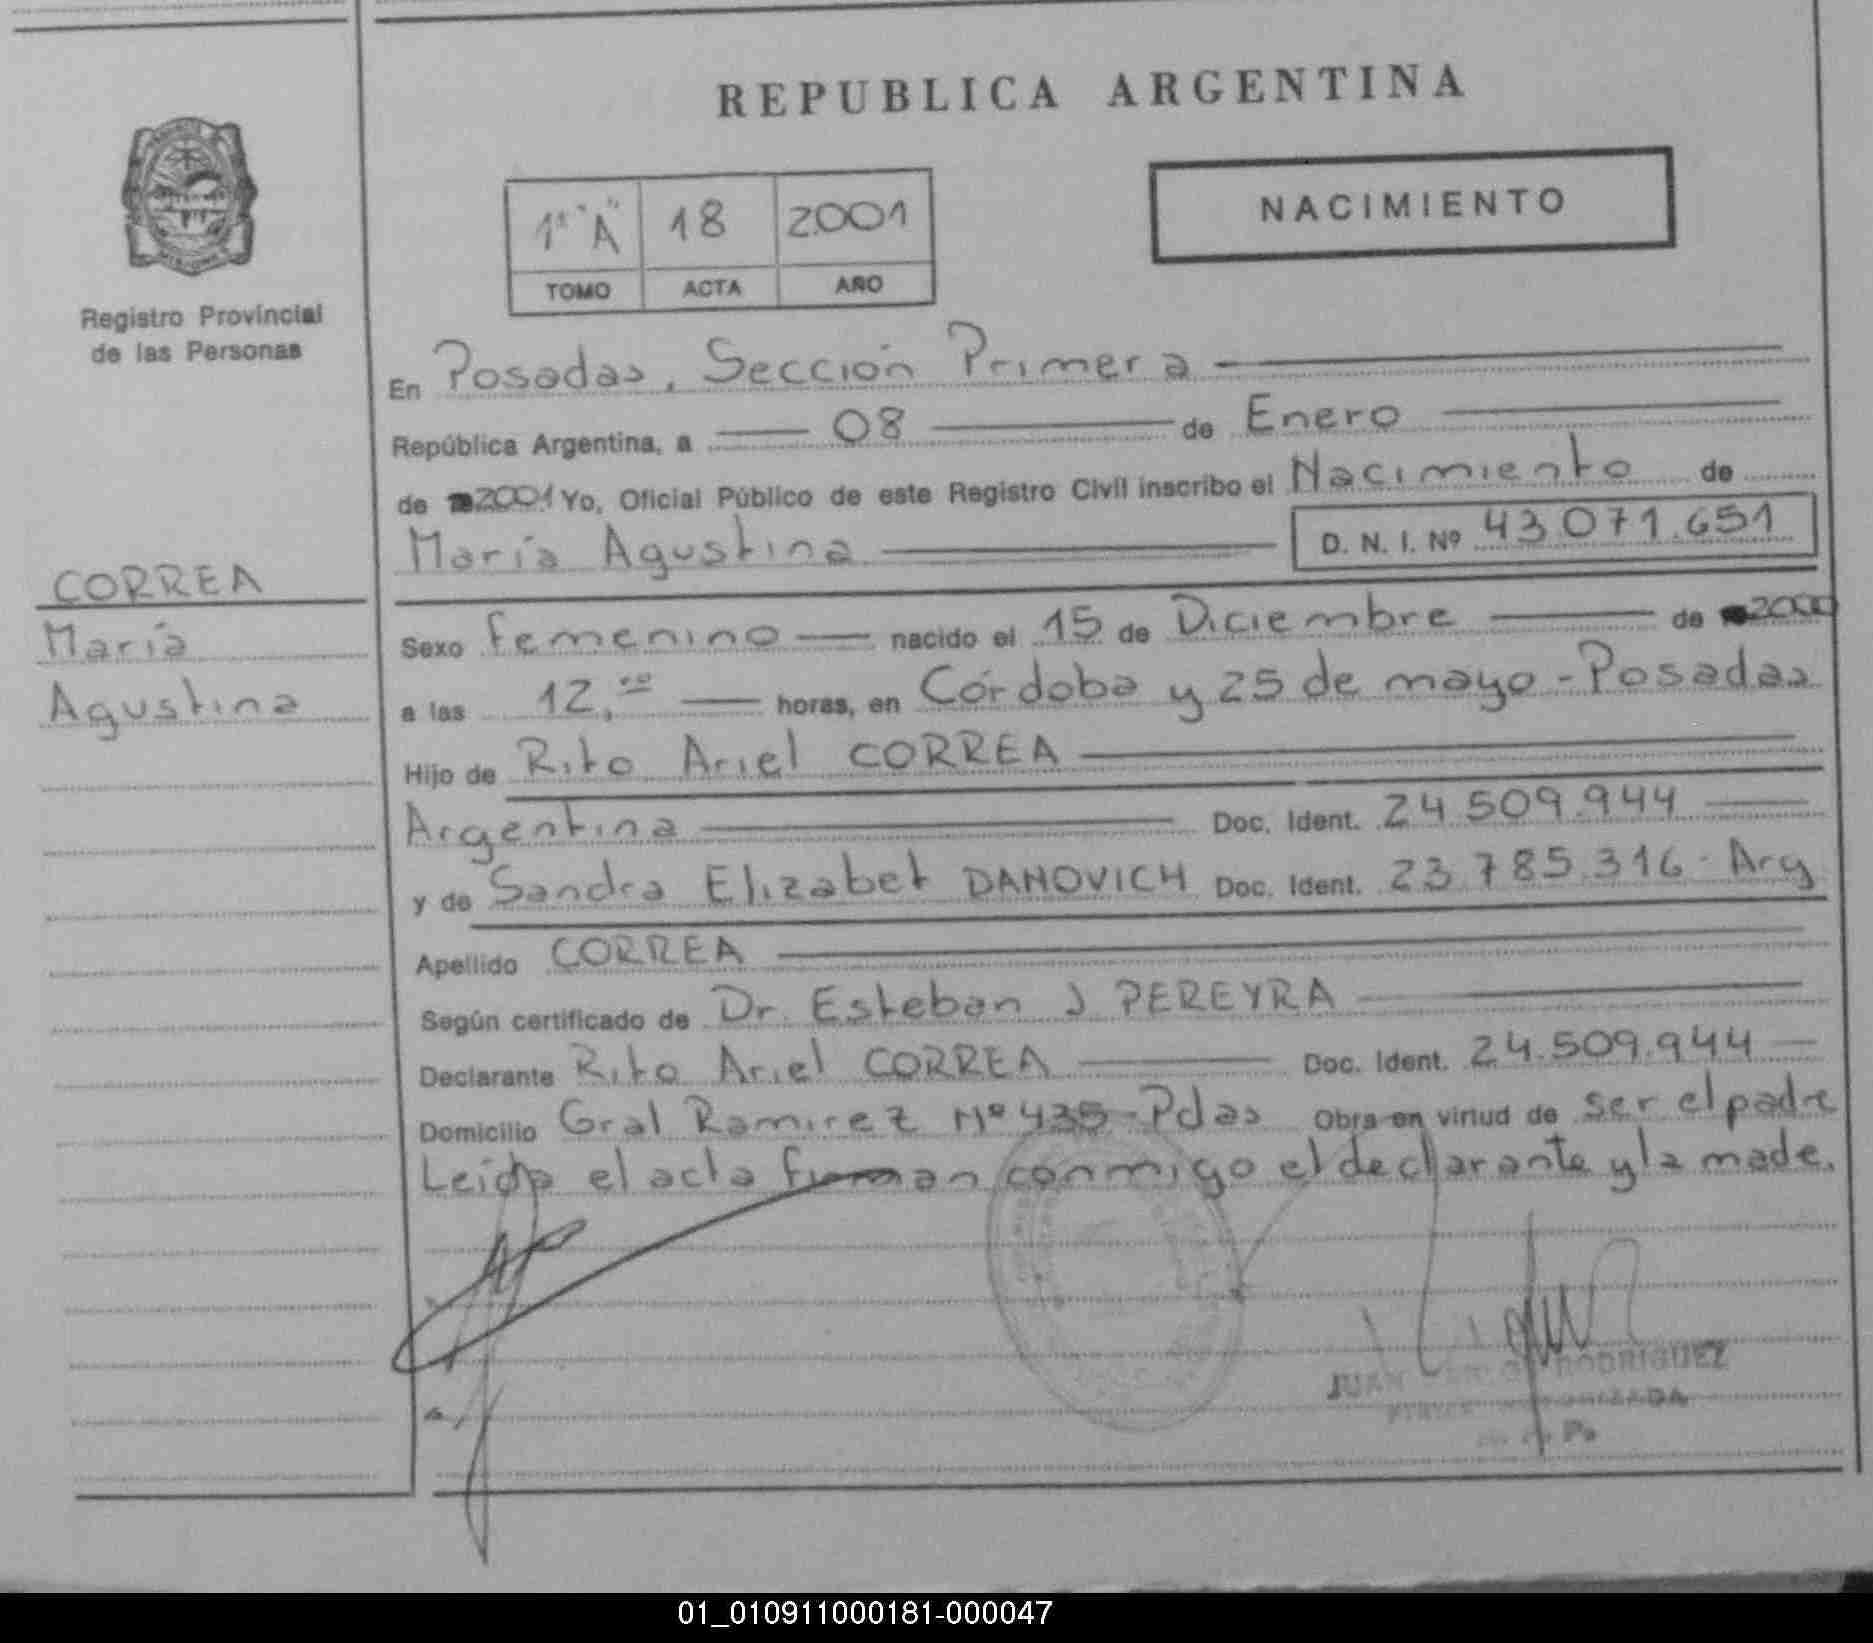 REPUBLICA ARGENTINA
NACIMIENTO
1º "A" 18 2001
TOMO ACTA AÑO
Registro Provincial
de las Personas
CORREA
María
Agustina
En Posadas, Sección Primera
República Argentina, a 08 de Enero
de 2001 Yo, Oficial Público de este Registro Civil inscribo el Nacimiento de
María Agustina D. N. I. Nº 43.071.651
Sexo Femenino nacido el 15 de Diciembre de 2000
a las 12,00 horas, en Córdoba y 25 de mayo - Posadas
Hijo de Rito Ariel CORREA
Argentina Doc. Ident. 24.509.944
y de Sandra Elizabet DANOVICH Doc. Ident. 23.785.316 - Arg
Apellido CORREA
Según certificado de Dr. Esteban J PEREYRA
Declarante Rito Ariel CORREA Doc. Ident. 24.509.944
Domicilio Gral Ramirez Nº 435 - Pdas Obra en virtud de ser el padre
Leída el acta firman conmigo el declarante y la made.
JUAN RODRIGUEZ
01_010911000181-000047